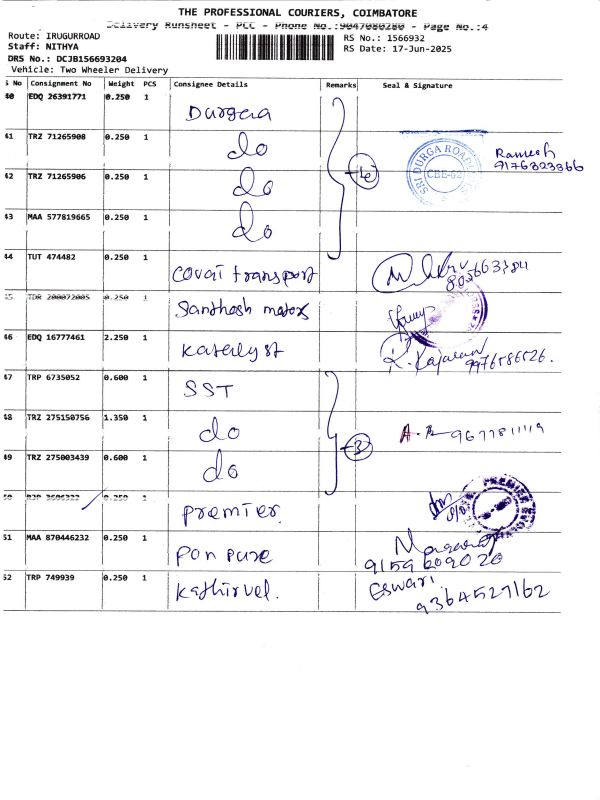 THE PROFESSIONAL COURIERS, COIMBATORE
Delivery Runsheet - PCC - Phone No.:9047080280 - Page No.:4
Route: IRUGURROAD
RS No.: 1566932
Staff: NITHYA
RS Date: 17-Jun-2025
DRS No.: DCJB156693204
Vehicle: Two Wheeler Delivery
S No Consignment No Weight PCS Consignee Details Remarks Seal & Signature
40 EDQ 26391771 0.250 1 Durga
41 TRZ 71265908 0.250 1 do SRI DURGA CBE-62 Ramesh
9176323366
42 TRZ 71265906 0.250 1 do
43 MAA 577819665 0.250 1 do
44 TUT 474482 0.250 1 covai transport
45 TDR 200072005 0.250 1 Santhosh motors
46 EDQ 16777461 2.250 1 Katalyst R. Kajalan
9976586526.
47 TRP 6735052 0.600 1 SST
48 TRZ 275150756 1.350 1 do 9677811119
49 TRZ 275003439 0.600 1 do 3
50 0.250 1 premier. PREMIER
51 MAA 870446232 0.250 1 pon pure
9159609020
52 TRP 749939 0.250 1 Kathirvel. Eswari
9364527162